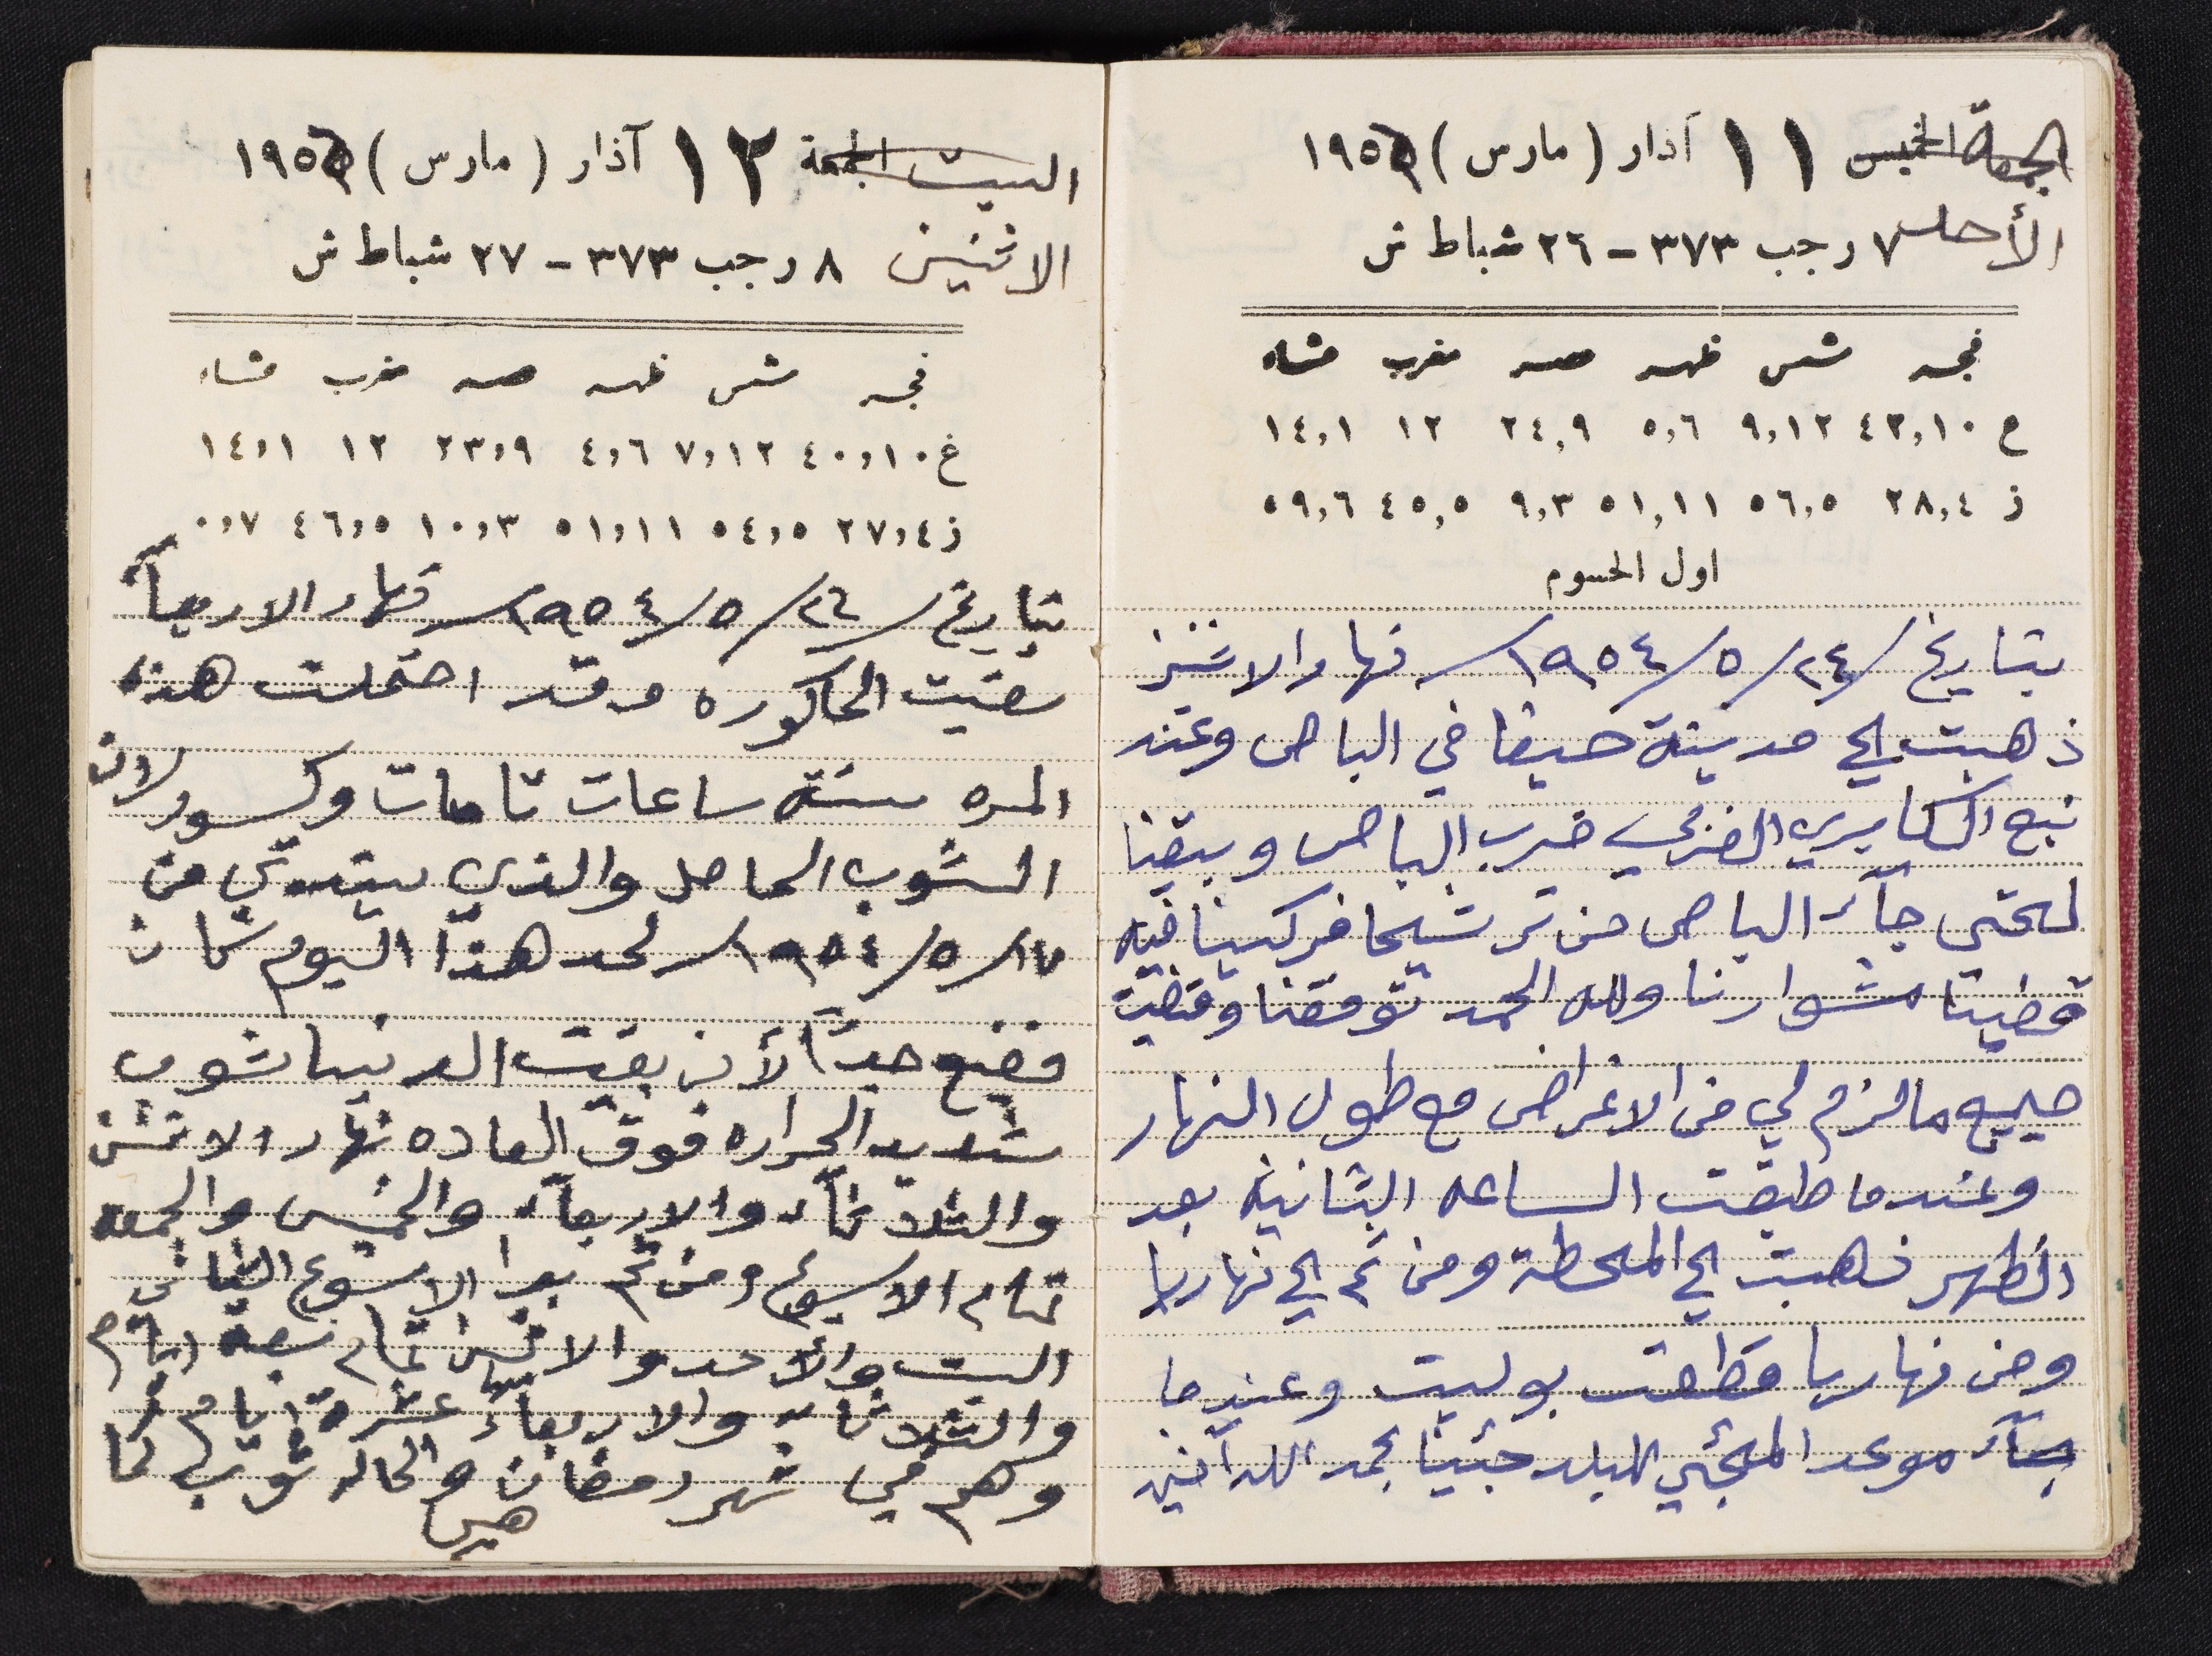 الجمعة الخميس ١١ آذار (مارس) ١٩٥٦
الأحد ٧ رجب ٣٧٣ - ٢٦ شباط ش
فجر شمس ظهر عصر مغرب عشاء
غ ٤٢,١٠ ٩,١٢ ٥,٦ ٢٤,٩ ١٢ ١٤,١
ز ٢٨,٤ ٥٦,٥ ٥١,١١ ٩,٣ ٤٥,٥ ٥٩,٦
اول الحسوم
بتاريخ ٢٤/٥/١٩٥٤ نهار الاثنين
ذهبت الى مدينة حيفا في الباص وعند
نبع الكابري الغربي خرب الباص وبقينا
لحتى جآء الباص من ترشيحا فركبنا فيه
قضينا مشوارنا ولله الحمد توفقنا وقضيت
جميع مالزم لي من الاغراض مع طول النهار
وعندما طبقت الساعه الثانية بعد
الظهر ذهبت الى المحطة ومن ثم الى نهاريا
ومن نهاريا قطعت بوليت وعندما
جآء موعد المجئي للبلد جئينا بحمد الله آمنين
السبت الجمعة ١٢ آذار (مارس) ١٩٥٦
الاثنين ٨ رجب ٣٧٣ - ٢٧ شباط ش
فجر شمس ظهر عصر مغرب عشاء
غ ٤٠,١٠ ٧,١٢ ٤,٦ ٢٣,٩ ١٢ ١٤,١
ز ٢٧,٤ ٥٤,٥ ٥١,١١ ١٠,٣ ٤٦,٥ ٠,٧
بتاريخ ٢٦/٥/١٩٥٤ نهار الاربعآء
سقيت الحاكوره وقد احتملت هذه
المره ستة ساعات تامات وكسور لان
الشوب الحاصل والذي يبتدي من
١٧/٥/١٩٥٤ لحد هذا اليوم كان
فضيع جداً لأن بقيت الدنيا شوب
شديد الحراره فوق العاده نهار الاثنين
والثلاثآء والاربعآء والخميس والجمعه
تمام الاسبوع ومن ثم بدا الاسبوع الثاني
السبت والأحد والاثنين تمام سبعة ايام
والثلاثاء والاربعاء عشرة ايام
وهم في شهر رمضان والحاله شوب كما
هي